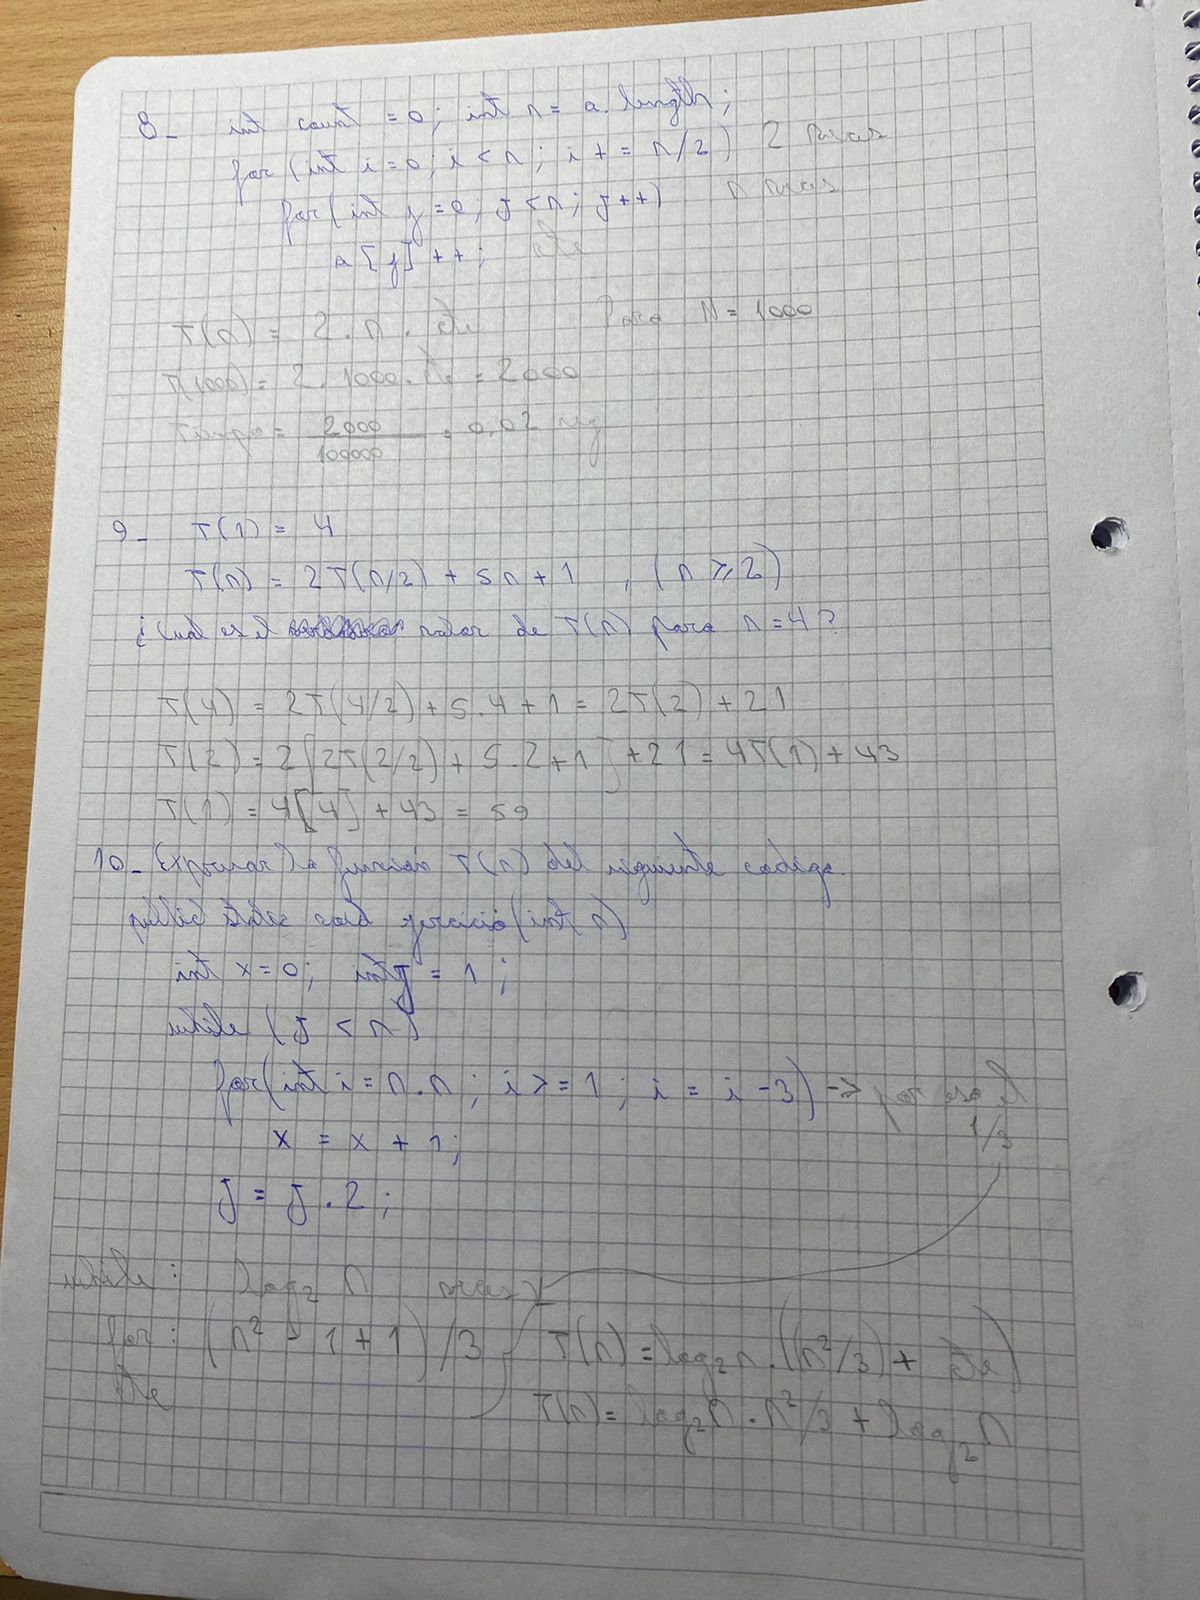 8- int count = 0; int n = a.length;
for(int i=0, i < n; i += n/2) 2 veces
for(int j=0; j < n; j++) n veces
a[j]++; cte
T(n) = 2 . n . cte Para N = 1000
T(1000) = 2 . 1000 . cte = 2000
Tiempo = 2000/100000 = 0,02 sg
9- T(1) = 4
T(n) = 2T(n/2) + 5n + 1 , (n ≥ 2)
¿Cual es el valor de T(n) para n = 4?
T(4) = 2T(4/2) + 5.4 + 1 = 2T(2) + 21
T(2) = 2[2T(2/2) + 5.2 + 1] + 21 = 4T(1) + 43
T(1) = 4[4] + 43 = 59
10- Expresar la función T(n) del siguiente código.
public static void ejercicio(int n)
int x = 0; int j = 1;
while (j < n)
for(int i = n.n; i >= 1; i = i - 3) -> por eso el
1/3
x = x + 1;
j = j . 2;
while: log₂ n veces
for: (n² - 1 + 1)/3 T(n) = log₂ n . ((n²/3) + cte)
cte T(n) = log₂ n . n²/3 + log₂ n